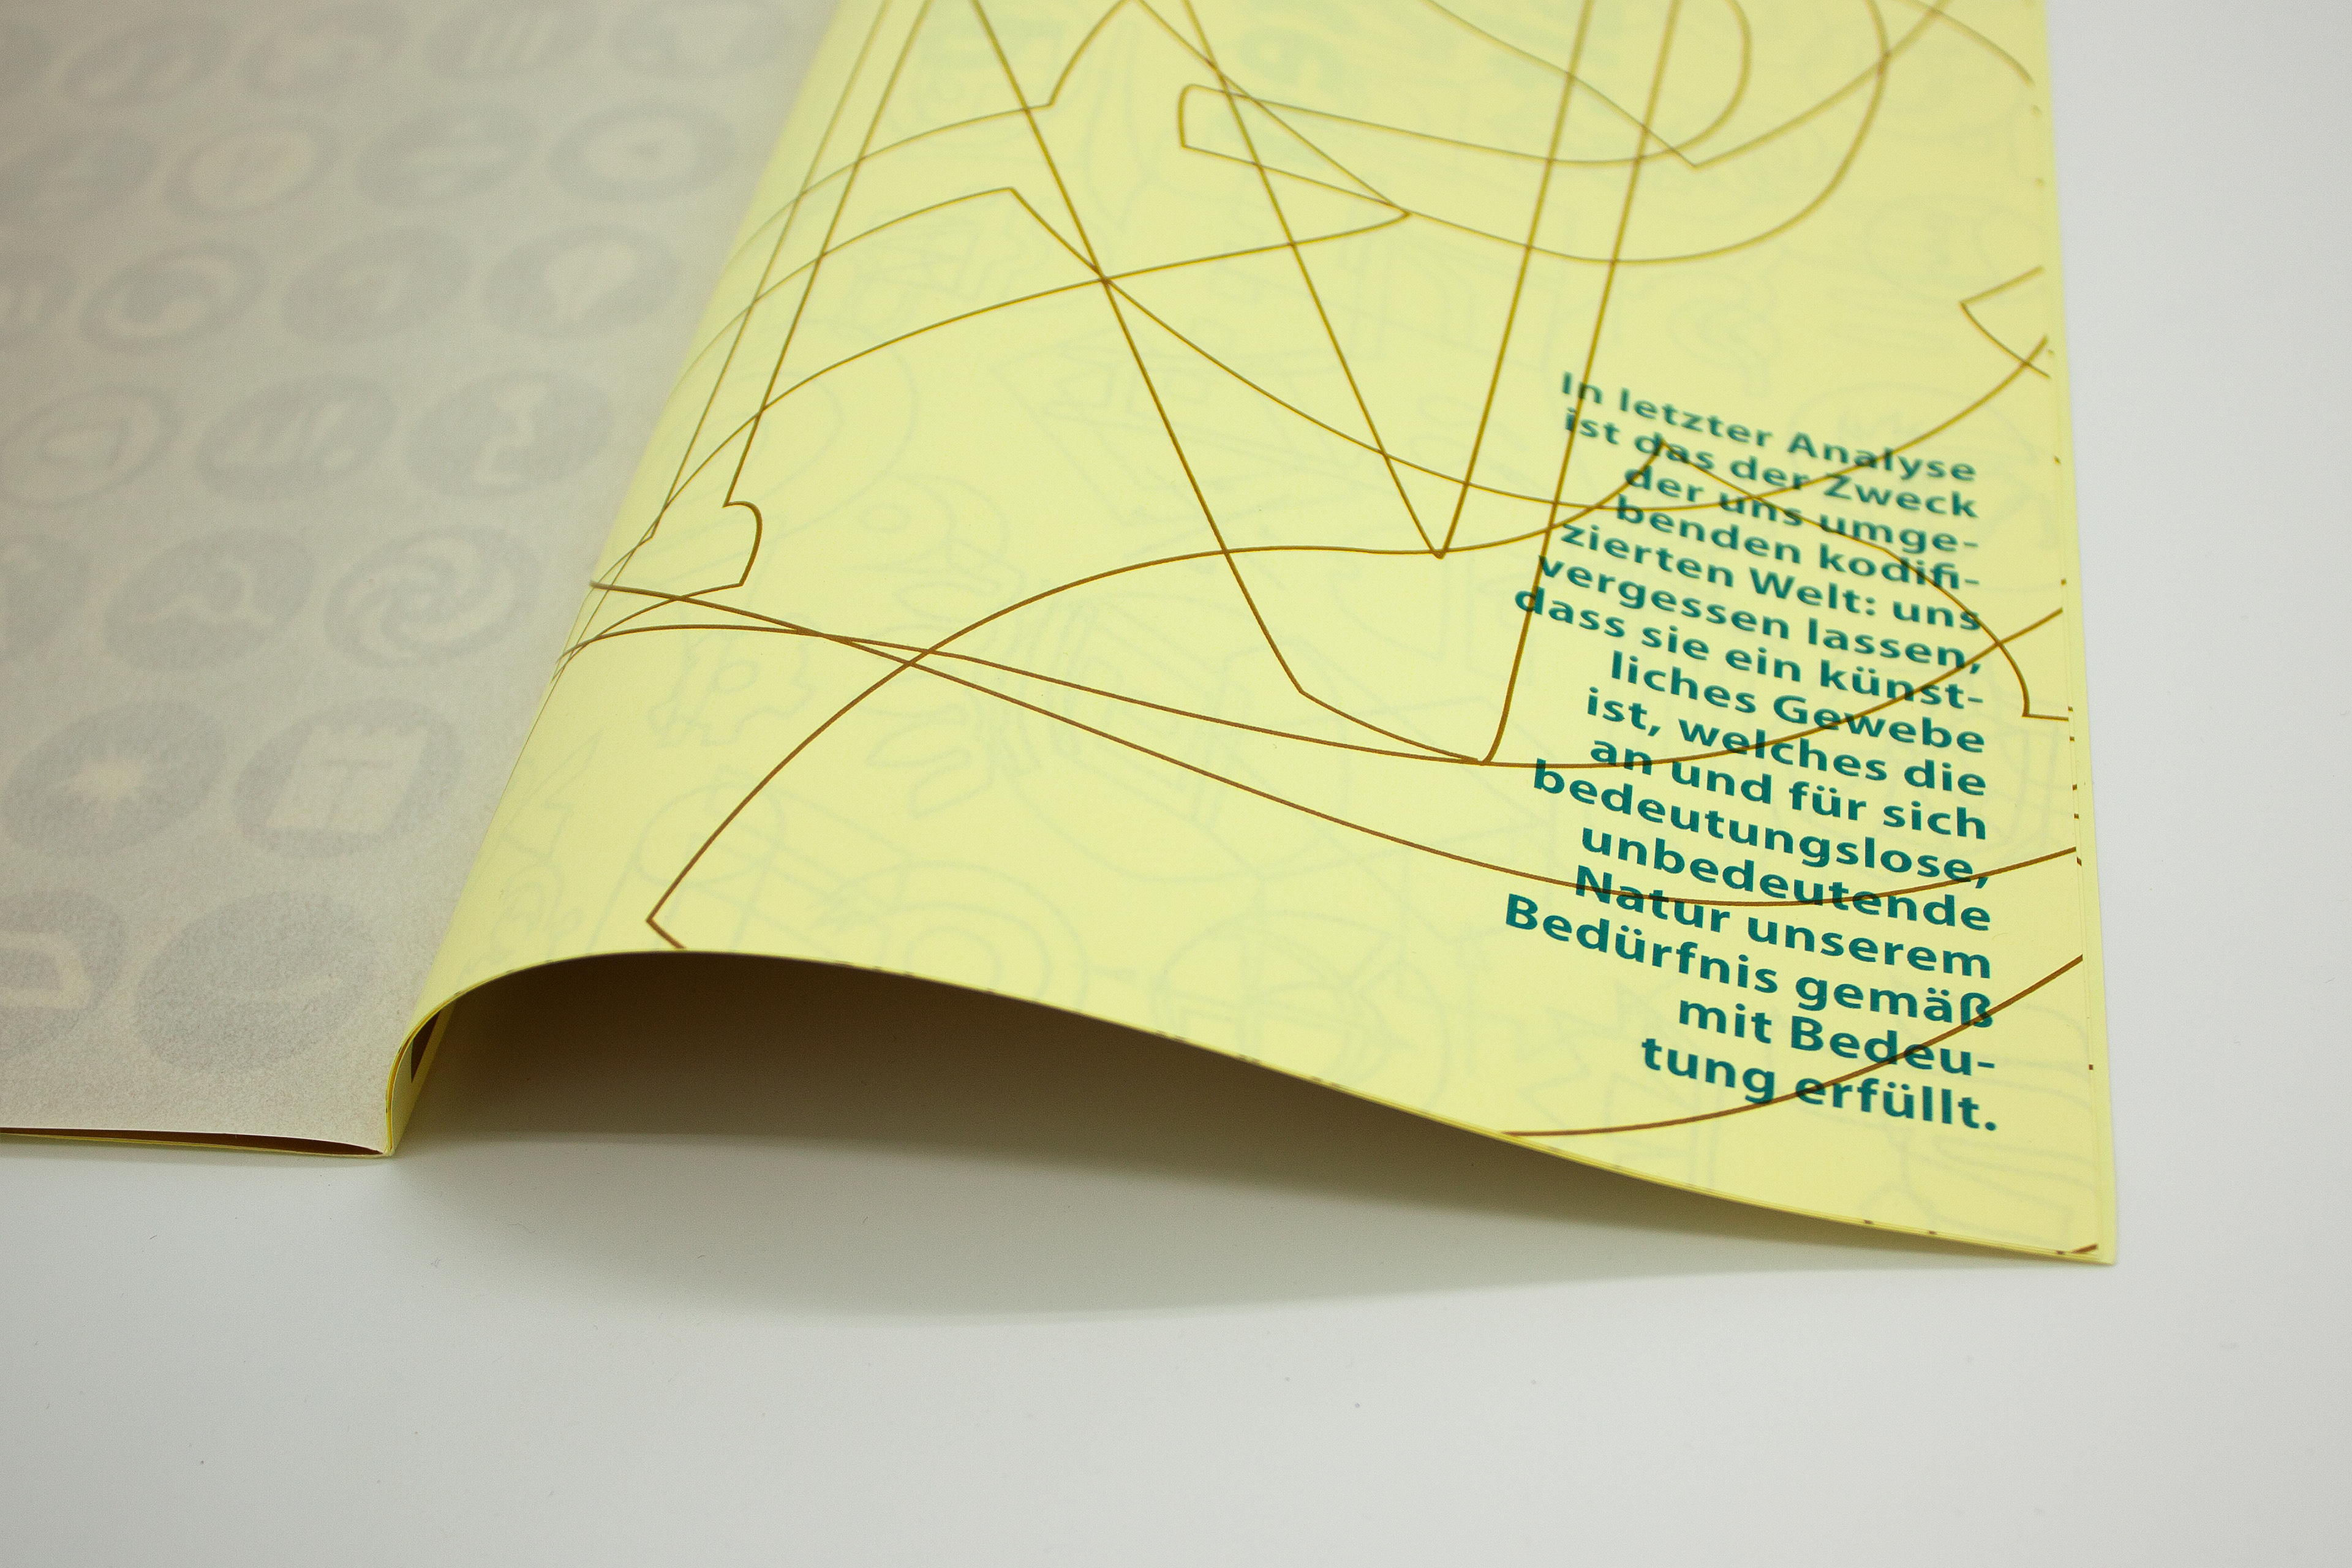 In letzter Analyse
ist das der Zweck
der uns umge-
benden kodifi-
zierten Welt: uns
vergessen lassen,
dass sie ein künst-
liches Gewebe
ist, welches die
an und für sich
bedeutungslose,
unbedeutende
Natur unserem
Bedürfnis gemäß
mit Bedeu-
tung erfüllt.